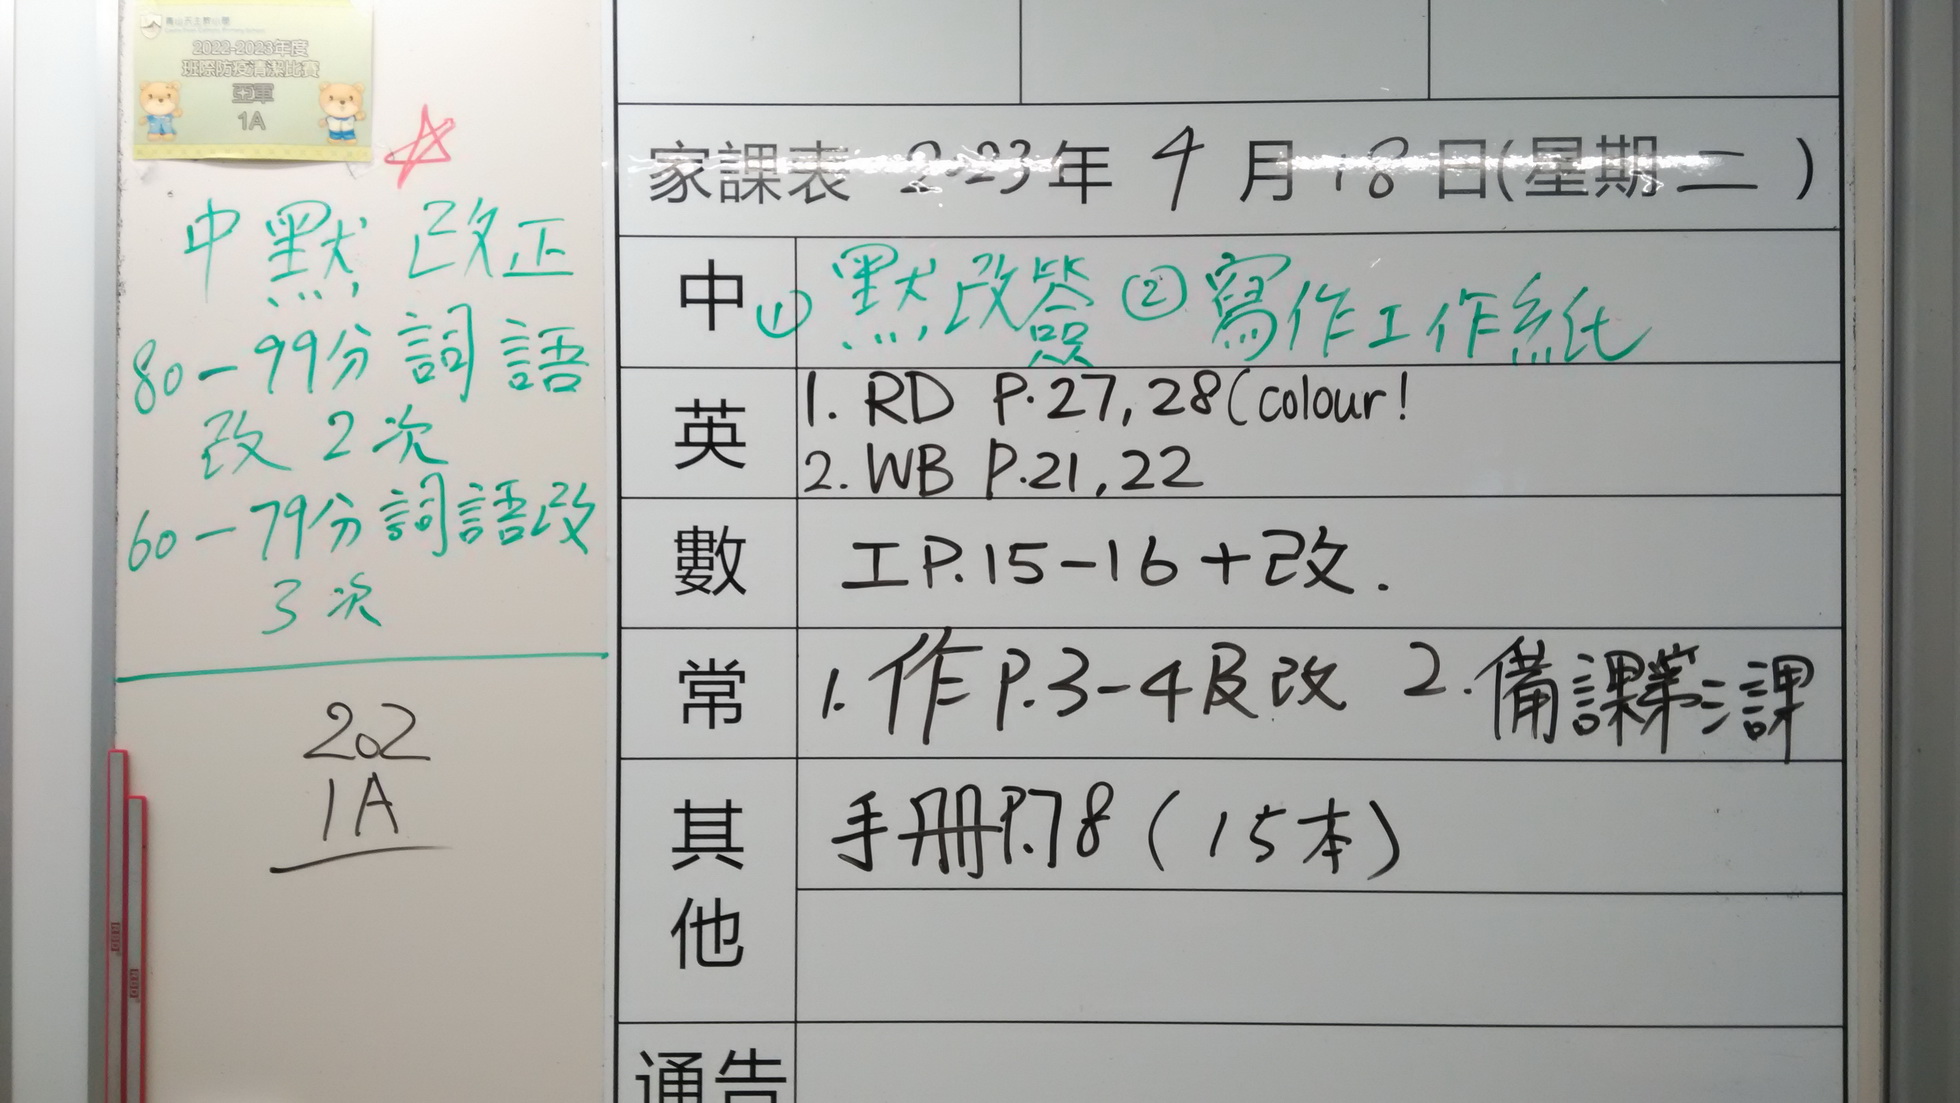 藍田天主教小學
2022-2023年度
班際防疫清潔比賽
亞軍
1A
中默改正
80-99分詞語
改2次
60-79分詞語改
3次
202
1A
家課表 2023年4月18日(星期二)
中 ①默改簽 ②寫作工作紙
英 1. RD P.27,28(colour!
2. WB P.21,22
數 工P.15-16+改.
常 1.作P.3-4及改 2.備課第三課
其他 手册P.78(15本)
通告